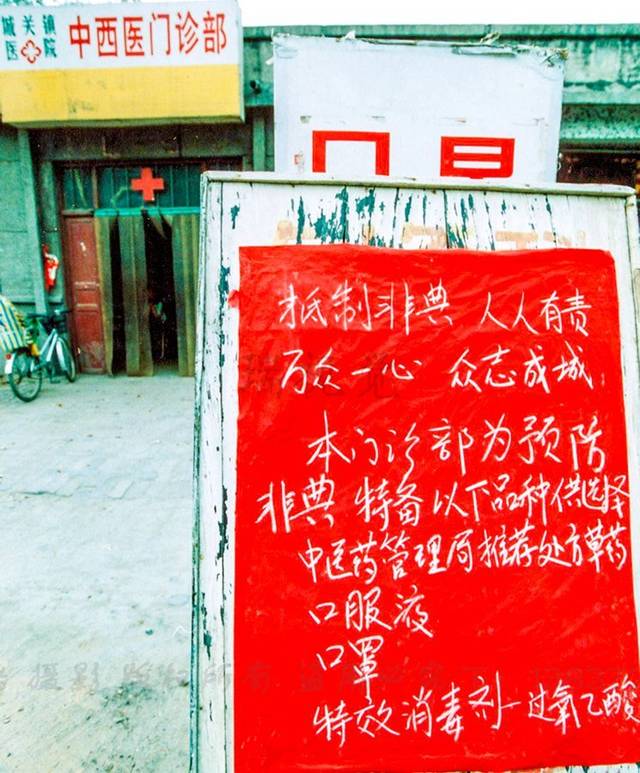 城关镇
医院
中西医门诊部
抵制非典 人人有责
万众一心 众志成城
本门诊部为预防
非典特备以下品种供选择
中医药管理局推荐处方草药
口服液
口罩
特效消毒剂-过氧乙酸